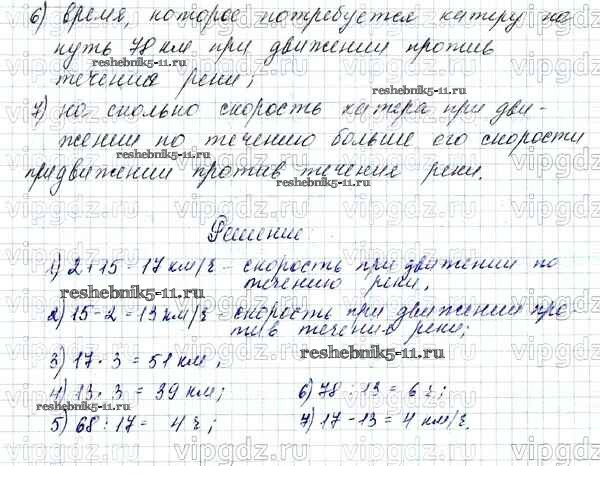 6) время, которое потребуется катеру на
путь 78 км при движении против
течения реки;
reshebnik5-11.ru
7) на сколько скорость катера при дви-
жении по течению больше его скорости
reshebnik5-11.ru
при движении против течения реки.
reshebnik5-11.ru
Решение:
1) 2+15=17 км/ч - скорость при движении по
течению реки,
reshebnik5-11.ru
2) 15-2=13 км/ч - скорость при движении про-
тив течения реки;
3) 17·3=51 км,
reshebnik5-11.ru
4) 13·3=39 км; 6) 78:13=6 ч;
reshebnik5-11.ru
5) 68:17= 4 ч; 7) 17-13=4 км/ч.
vipgdz.ru